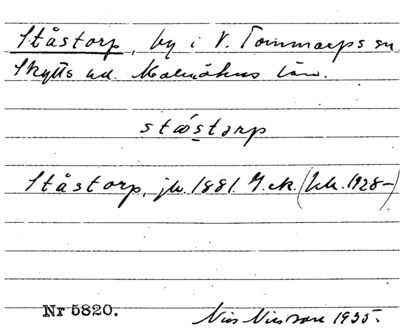 Ståstorp, by i V. Tommarps sn.
Skytts hd. Malmöhus län.
Ståstorp, jw. 1881. G.ek. (1928–)
Nr 5820.
Nils Nilsson 1935.